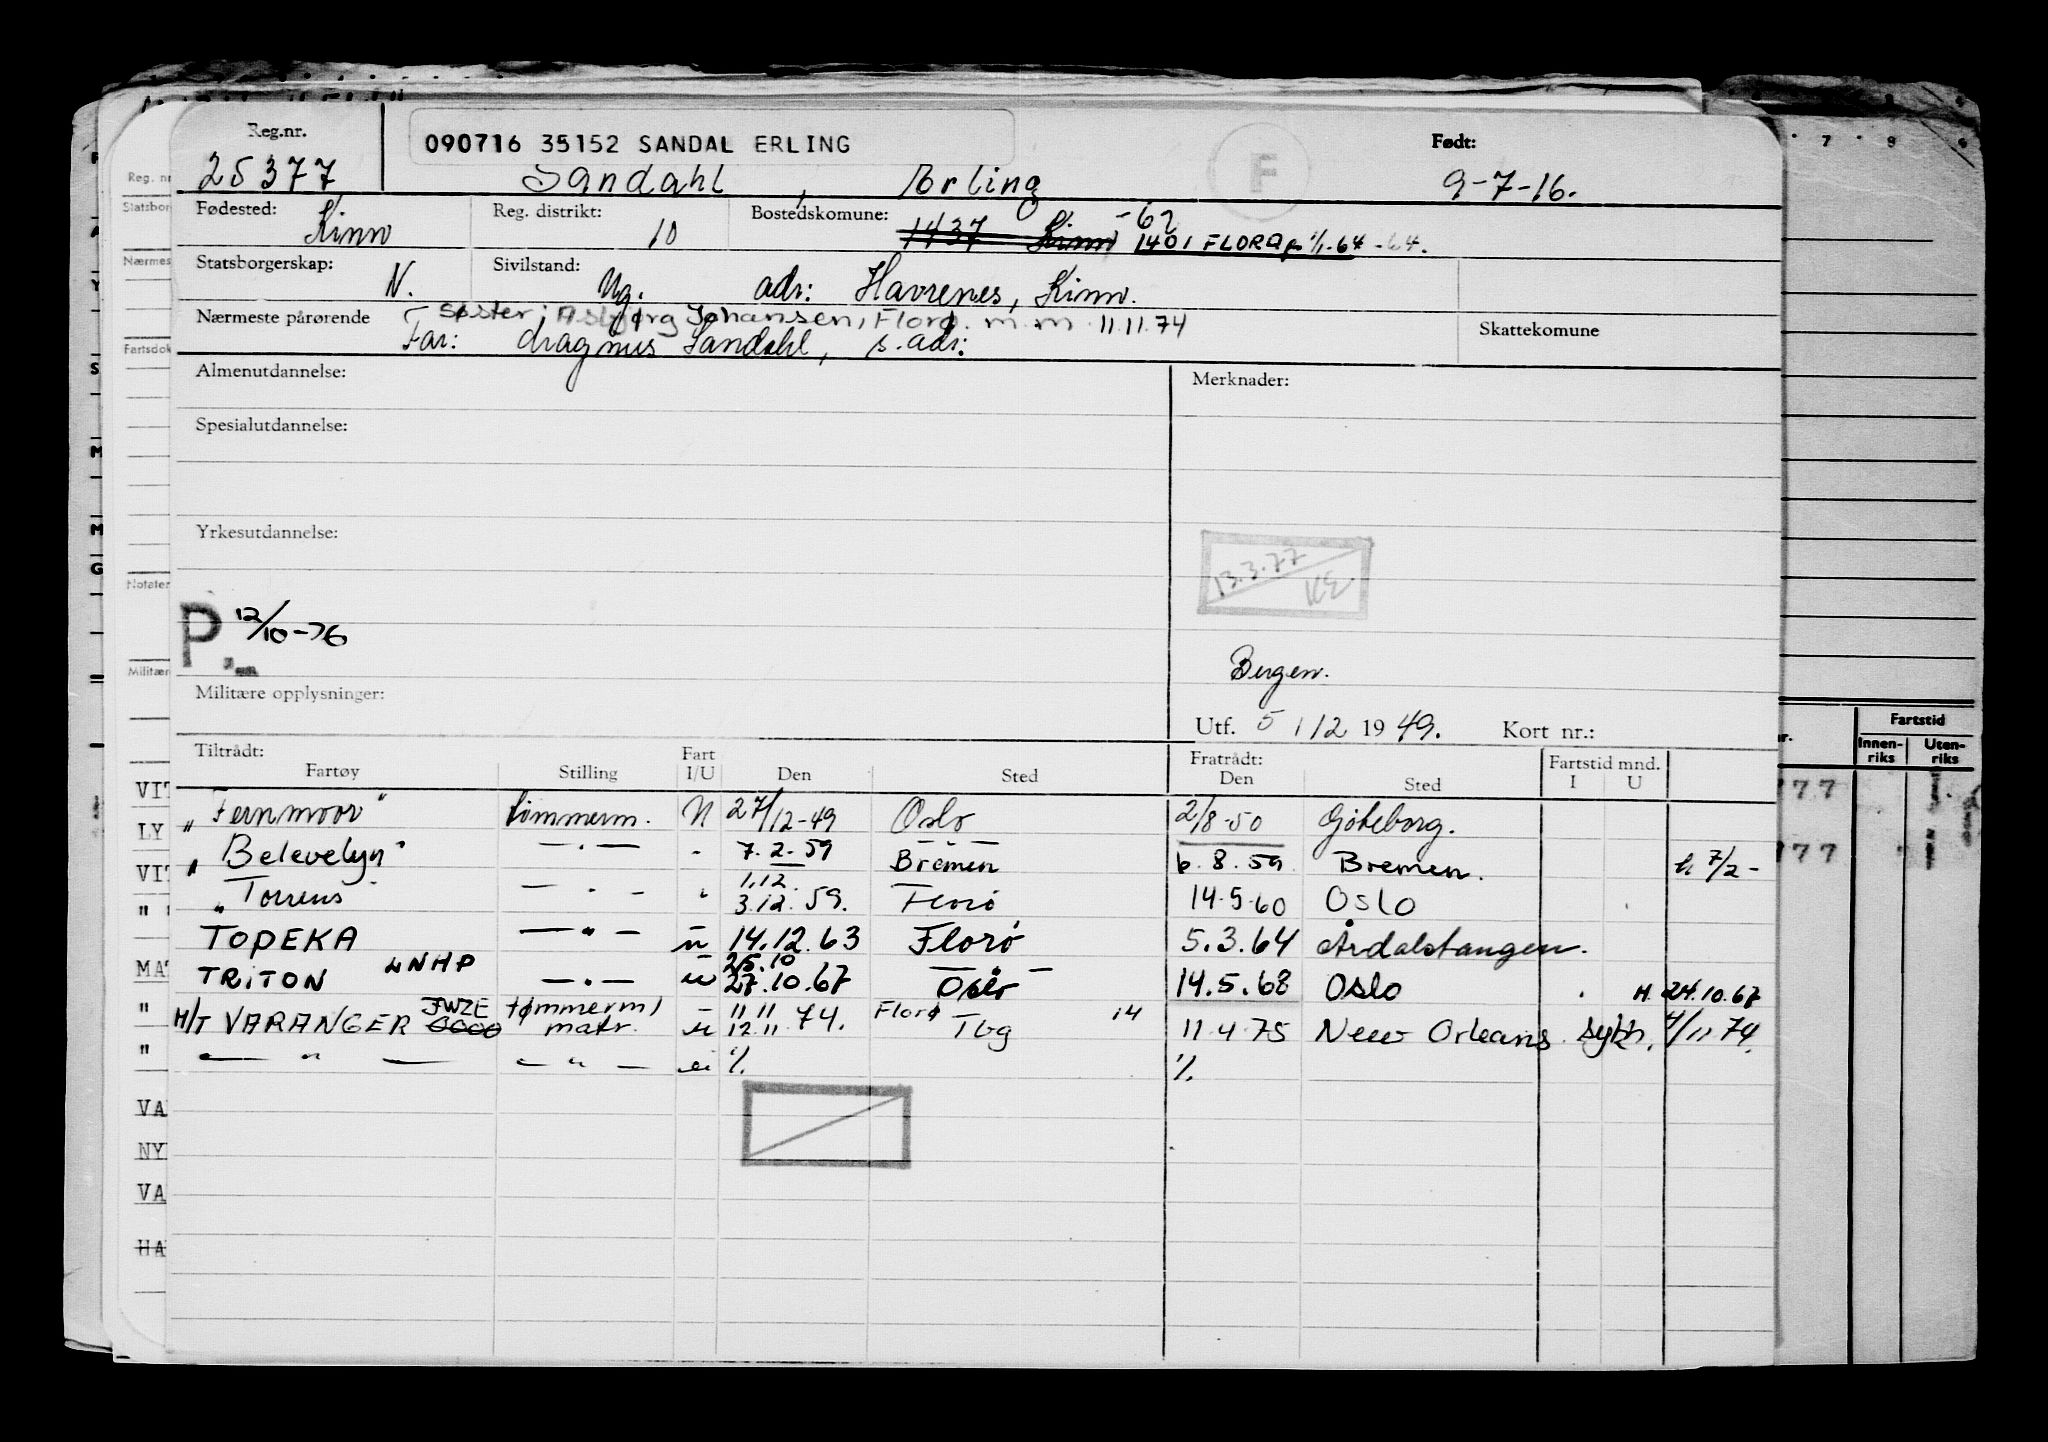 Reg.nr. 090716 35152 SANDAL ERLING F Født:
25377 Sandahl, Erling 9-7-16.
Fødested: Kinn Reg. distrikt: 10 Bostedskomune: 1437 Kinn -62 1401 FLORA fr 1/1-64 -64.
Statsborgerskap: N. Sivilstand: Ug. adr: Havrenes, Kinn.
Nærmeste pårørende Søster: Asbjørg Johansen, Florø. m.m 11.11.74 Skattekomune
Far: Magnus Sandahl, s. adr:
Almenutdannelse: Merknader:
Spesialutdannelse:
Yrkesutdannelse:
13.3.77 KE
P 12/10-76
Bergen.
Militære opplysninger:
Utf. 5 / 12 1949. Kort nr.:
Tiltrådt: Fratrådt:
Fartøy Stilling Fart I/U Den Sted Den Sted Fartstid mnd. I U
"Fernmoor" tømmerm. U 27/12-49 Oslo 2/8-50 Göteborg.
"Belevelyn" — . — " 7.2-59 Bremen 6.8.59 Bremen. h 7/2-
"Torrens" — . — " 1.12. 3.12.59. Florø 14.5.60 Oslo
TOPEKA — " — u 14.12.63 Florø 5.3.64 Årdalstangen.
TRITON LNHP — . — u 25.10 27.10.67 Oslo 14.5.68 Oslo H. 24.10.67
M/T VARANGER JWZE tømmerm/ matr. u 11.11 12.11.74. Florø Tbg 14 11.4.75 New Orleans. sykh. 4/11 74.
— " — — " — u %. %.
Reg. nr
Statsbor
Nærmes
Fartsdok
Notater
Militær
VIT
LY
VIT
" "
MAT
"
"
VA
NY
VA
HA
7 8 9
Fartstid
Innen-riks Uten-riks
77
77